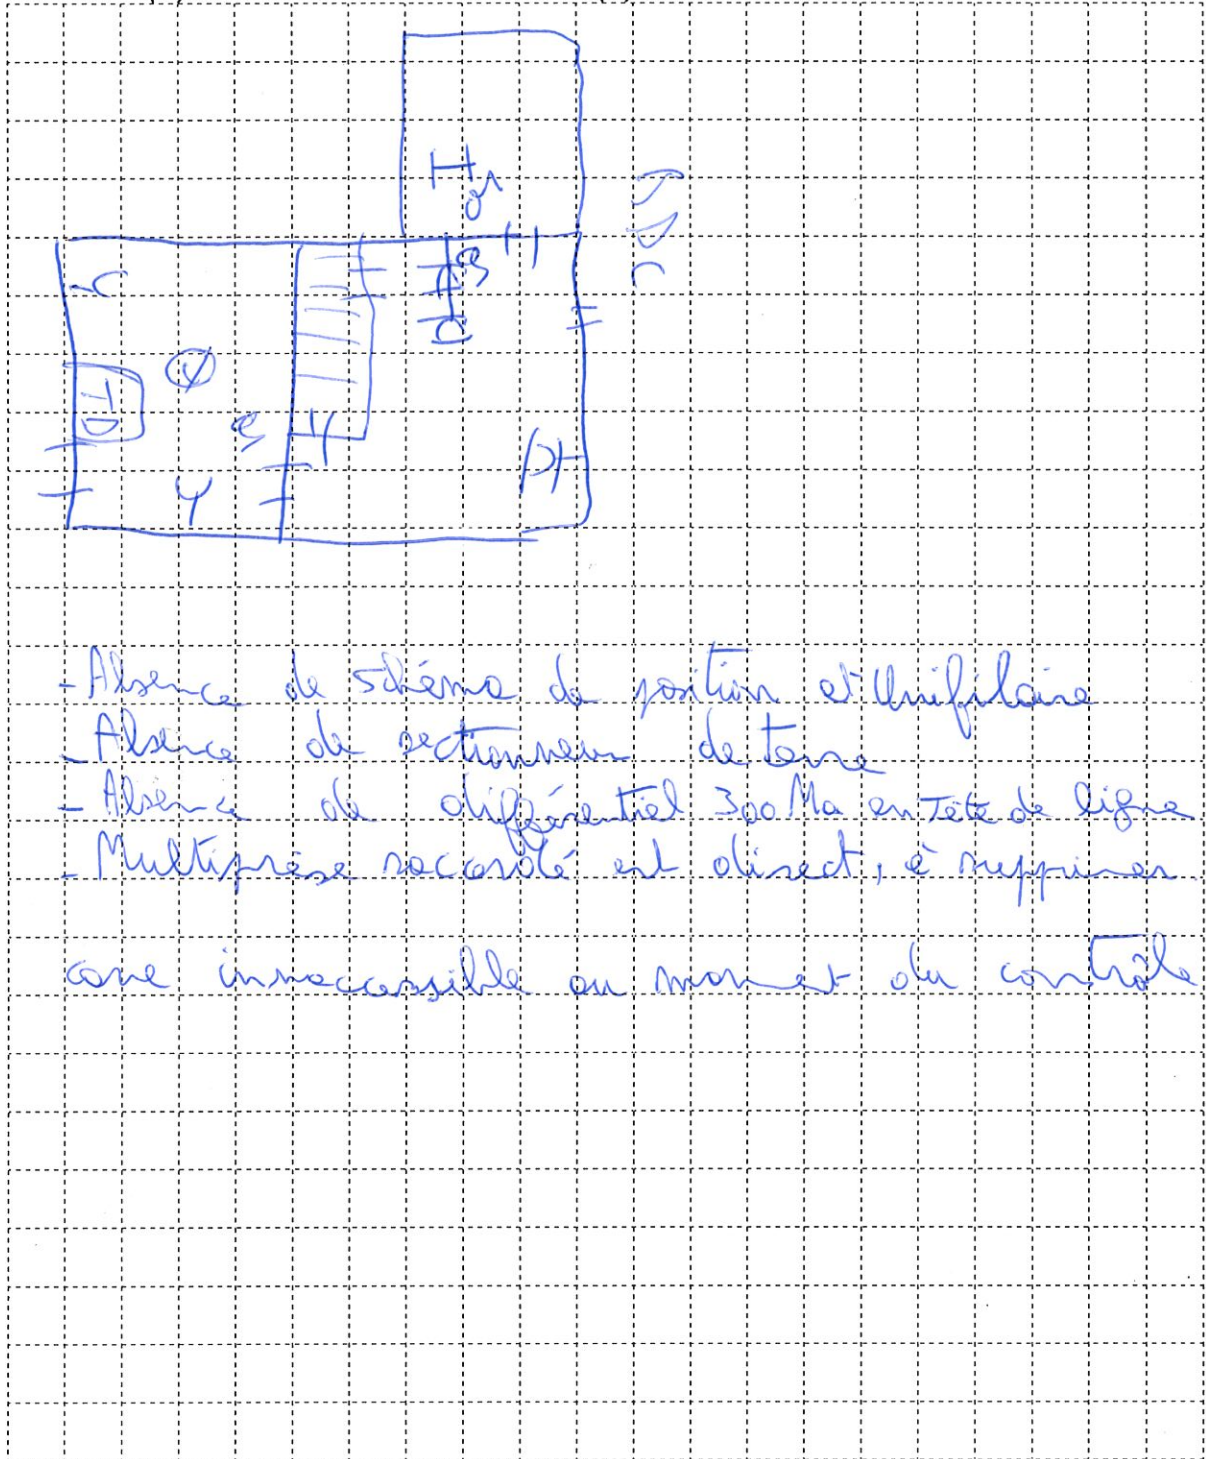 RDC
- Absence de schéma de position et Unifilaire
- Absence de sectionneur de terre
- Absence de différentiel 300 Ma en Tête de ligne
- Multiprise racordé est direct, à supprimer
cave innaccessible au moment du contrôle